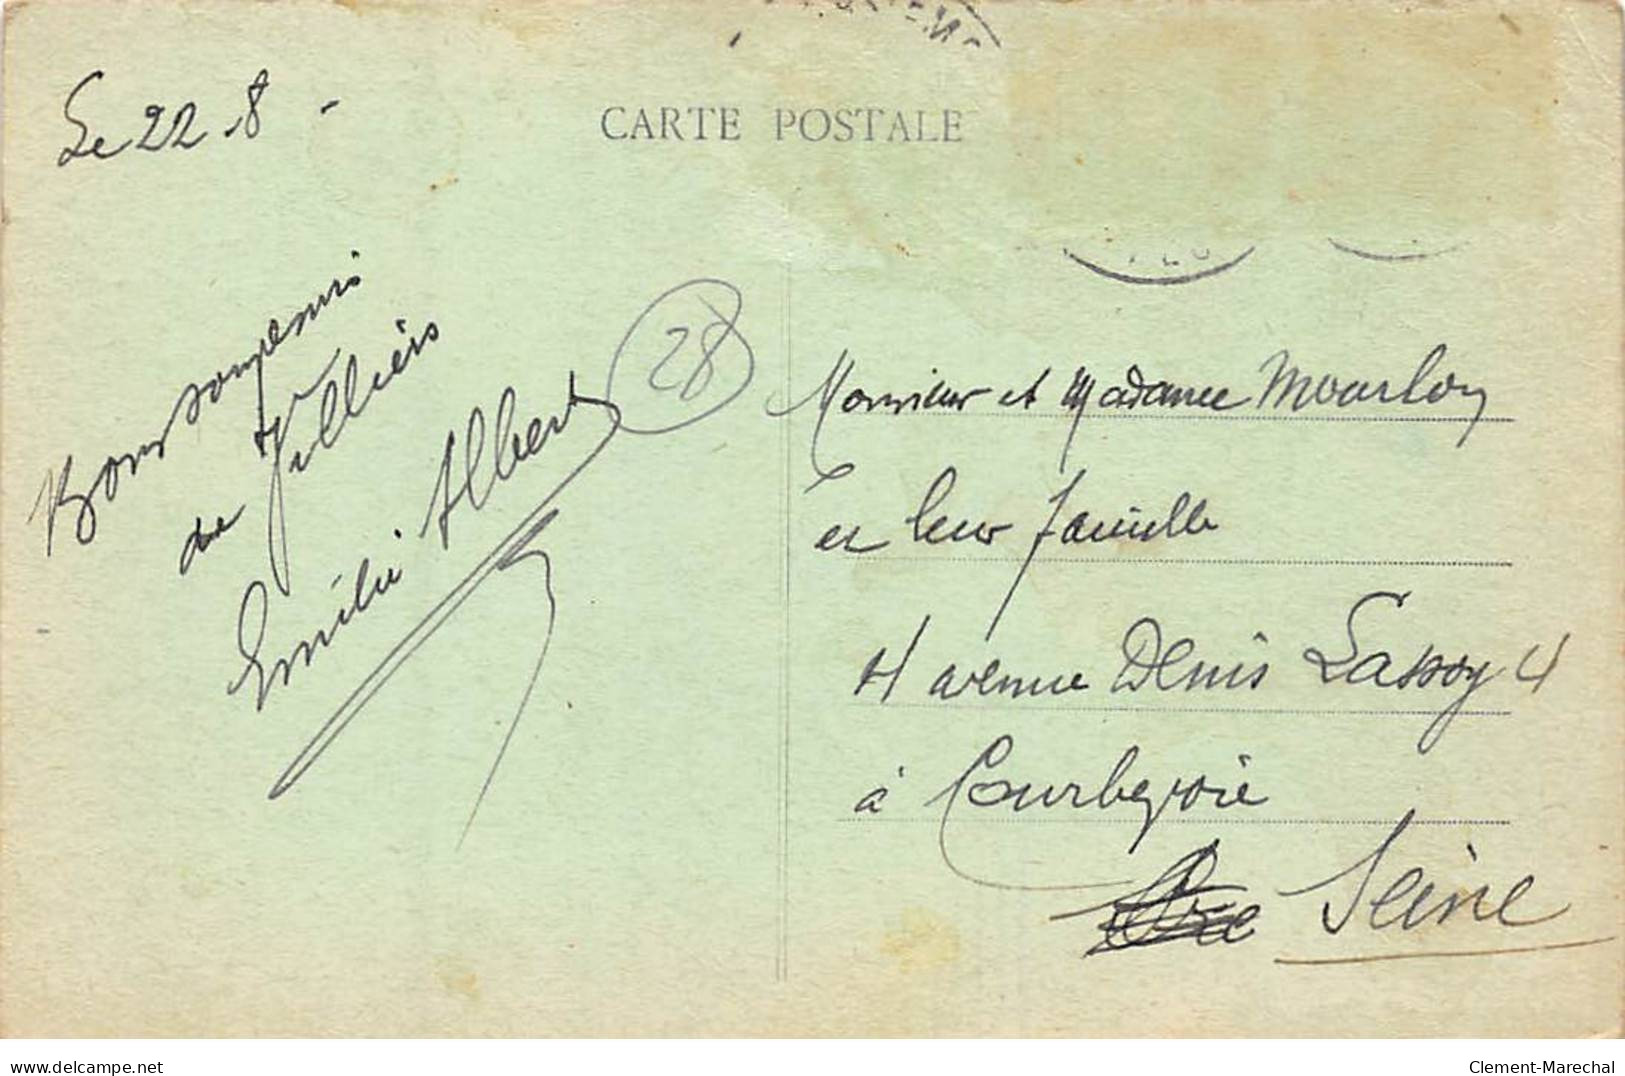 CARTE POSTALE
Le 22-8-
Bons souvenirs
de Villiers
Emilie Albert
28
Monsieur et Madame Mourlon
et leur famille
4 avenue Denis Lassoy 4
à Courbevoie
Seine
delcampe.net
Clement-Marechal